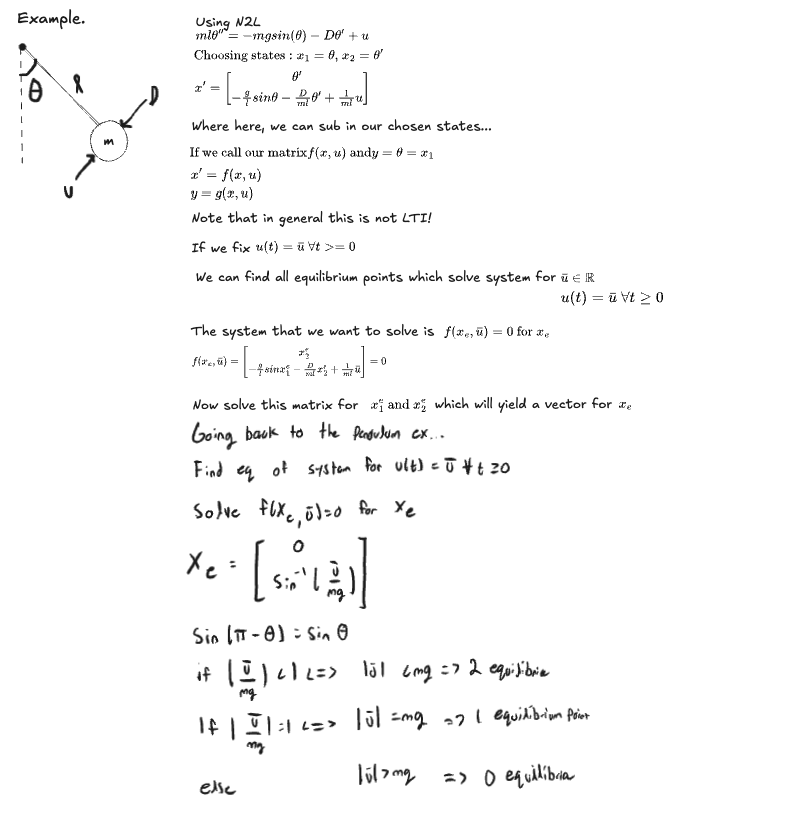 Example.
θ
l
D
m
U
Using N2L
mlθ'' = −mgsin(θ) − Dθ' + u
Choosing states : x₁ = θ, x₂ = θ'
x' = [θ'
−g/l sinθ − D/ml θ' + 1/ml u]
Where here, we can sub in our chosen states...
If we call our matrixf(x, u) andy = θ = x₁
x' = f(x, u)
y = g(x, u)
Note that in general this is not LTI!
If we fix u(t) = ū ∀t >= 0
We can find all equilibrium points which solve system for ū ∈ ℝ
u(t) = ū ∀t ≥ 0
The system that we want to solve is f(xₑ, ū) = 0 for xₑ
f(xₑ, ū) = [x₂ᵉ
−g/l sinx₁ᵉ − D/ml x₂ᵉ + 1/ml ū] = 0
Now solve this matrix for x₁ᵉ and x₂ᵉ which will yield a vector for xₑ
Going back to the pendulum ex...
Find eq of system for u(t) = ū ∀ t ≥ 0
Solve f(xₑ, ū) = 0 for xₑ
Xₑ = [0
sin⁻¹(ū/mg)]
Sin (π - θ) = Sin θ
if |ū/mg| < 1 <=> |ū| < mg => 2 equilibria
If |ū/mg| = 1 <=> |ū| = mg => 1 equilibrium point
else |ū| > mg => 0 equilibria